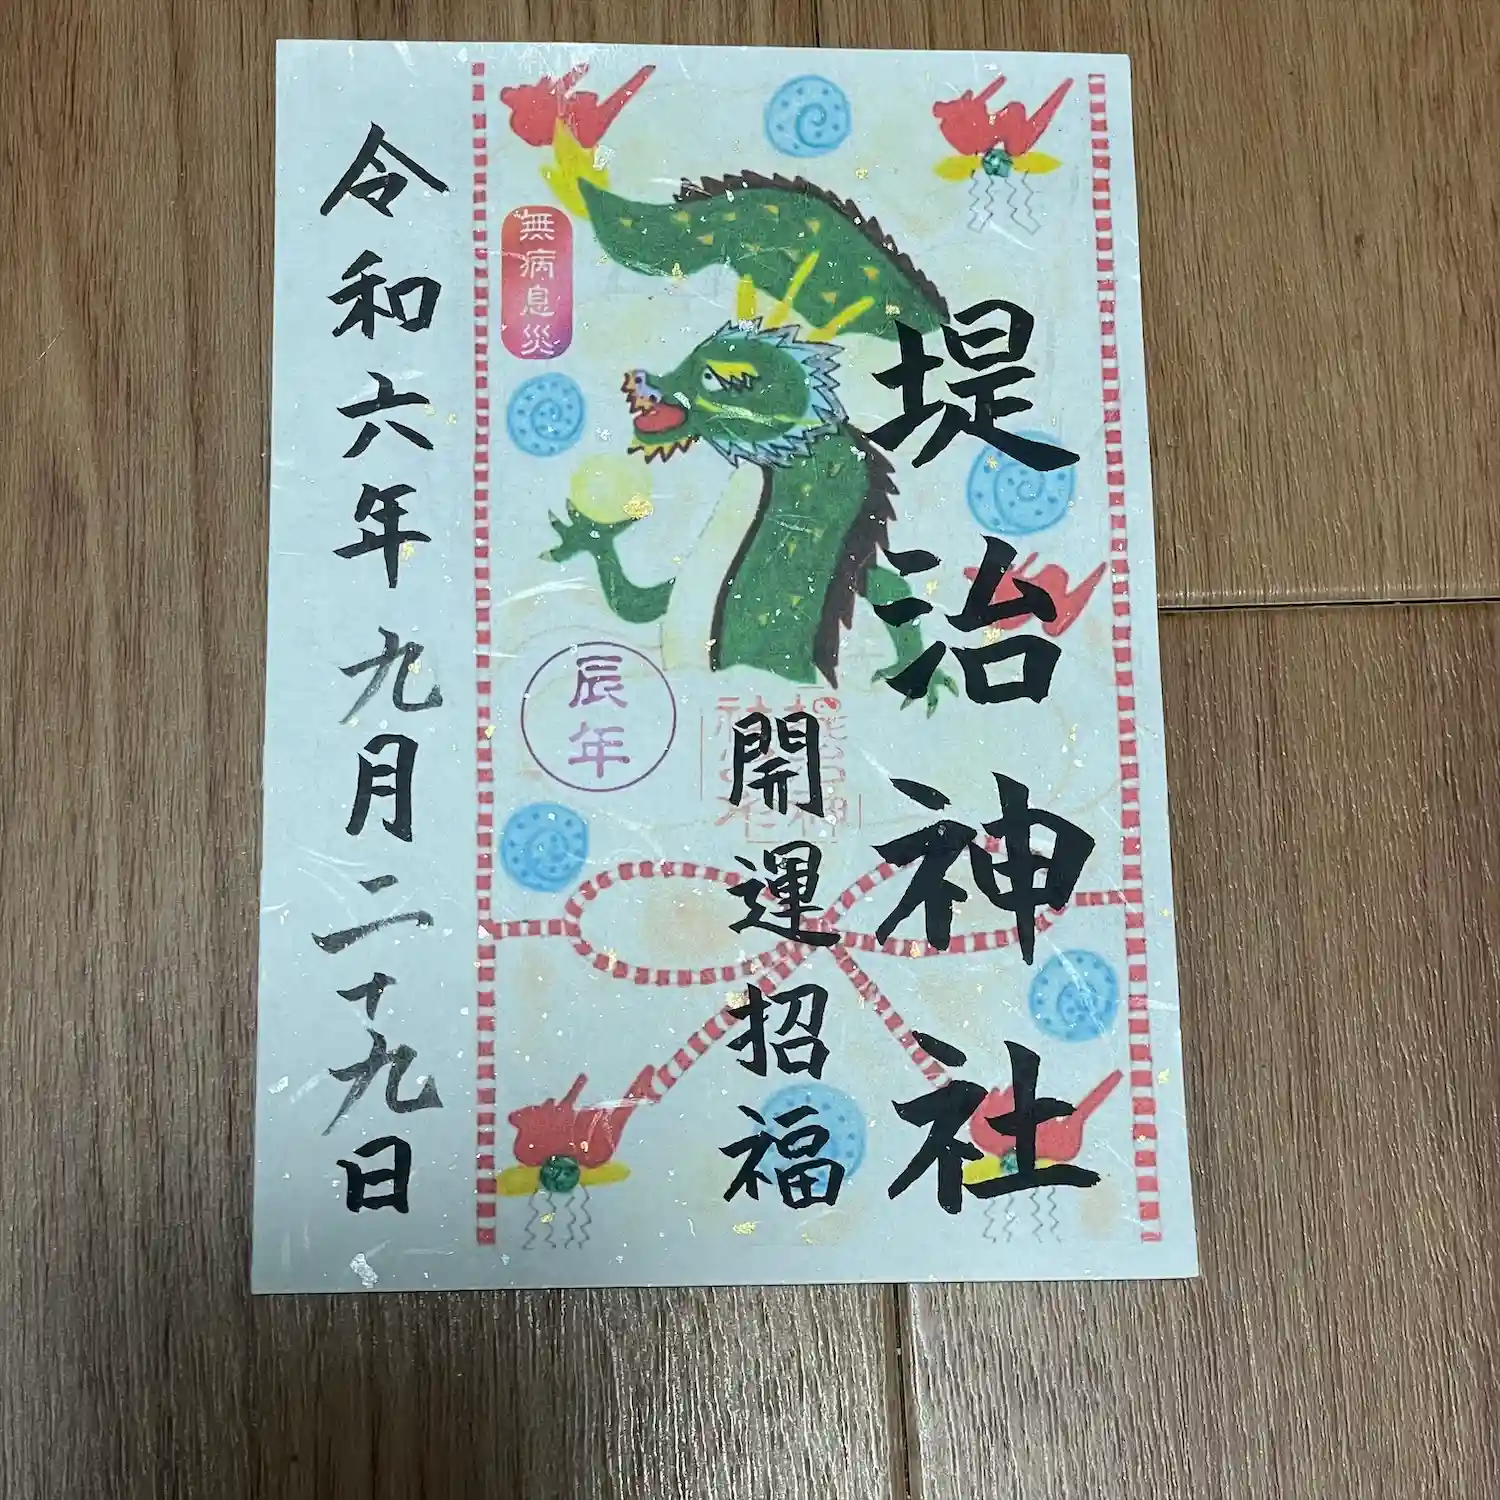 堤治神社
開運招福
無病息災
辰年
令和六年九月二十九日